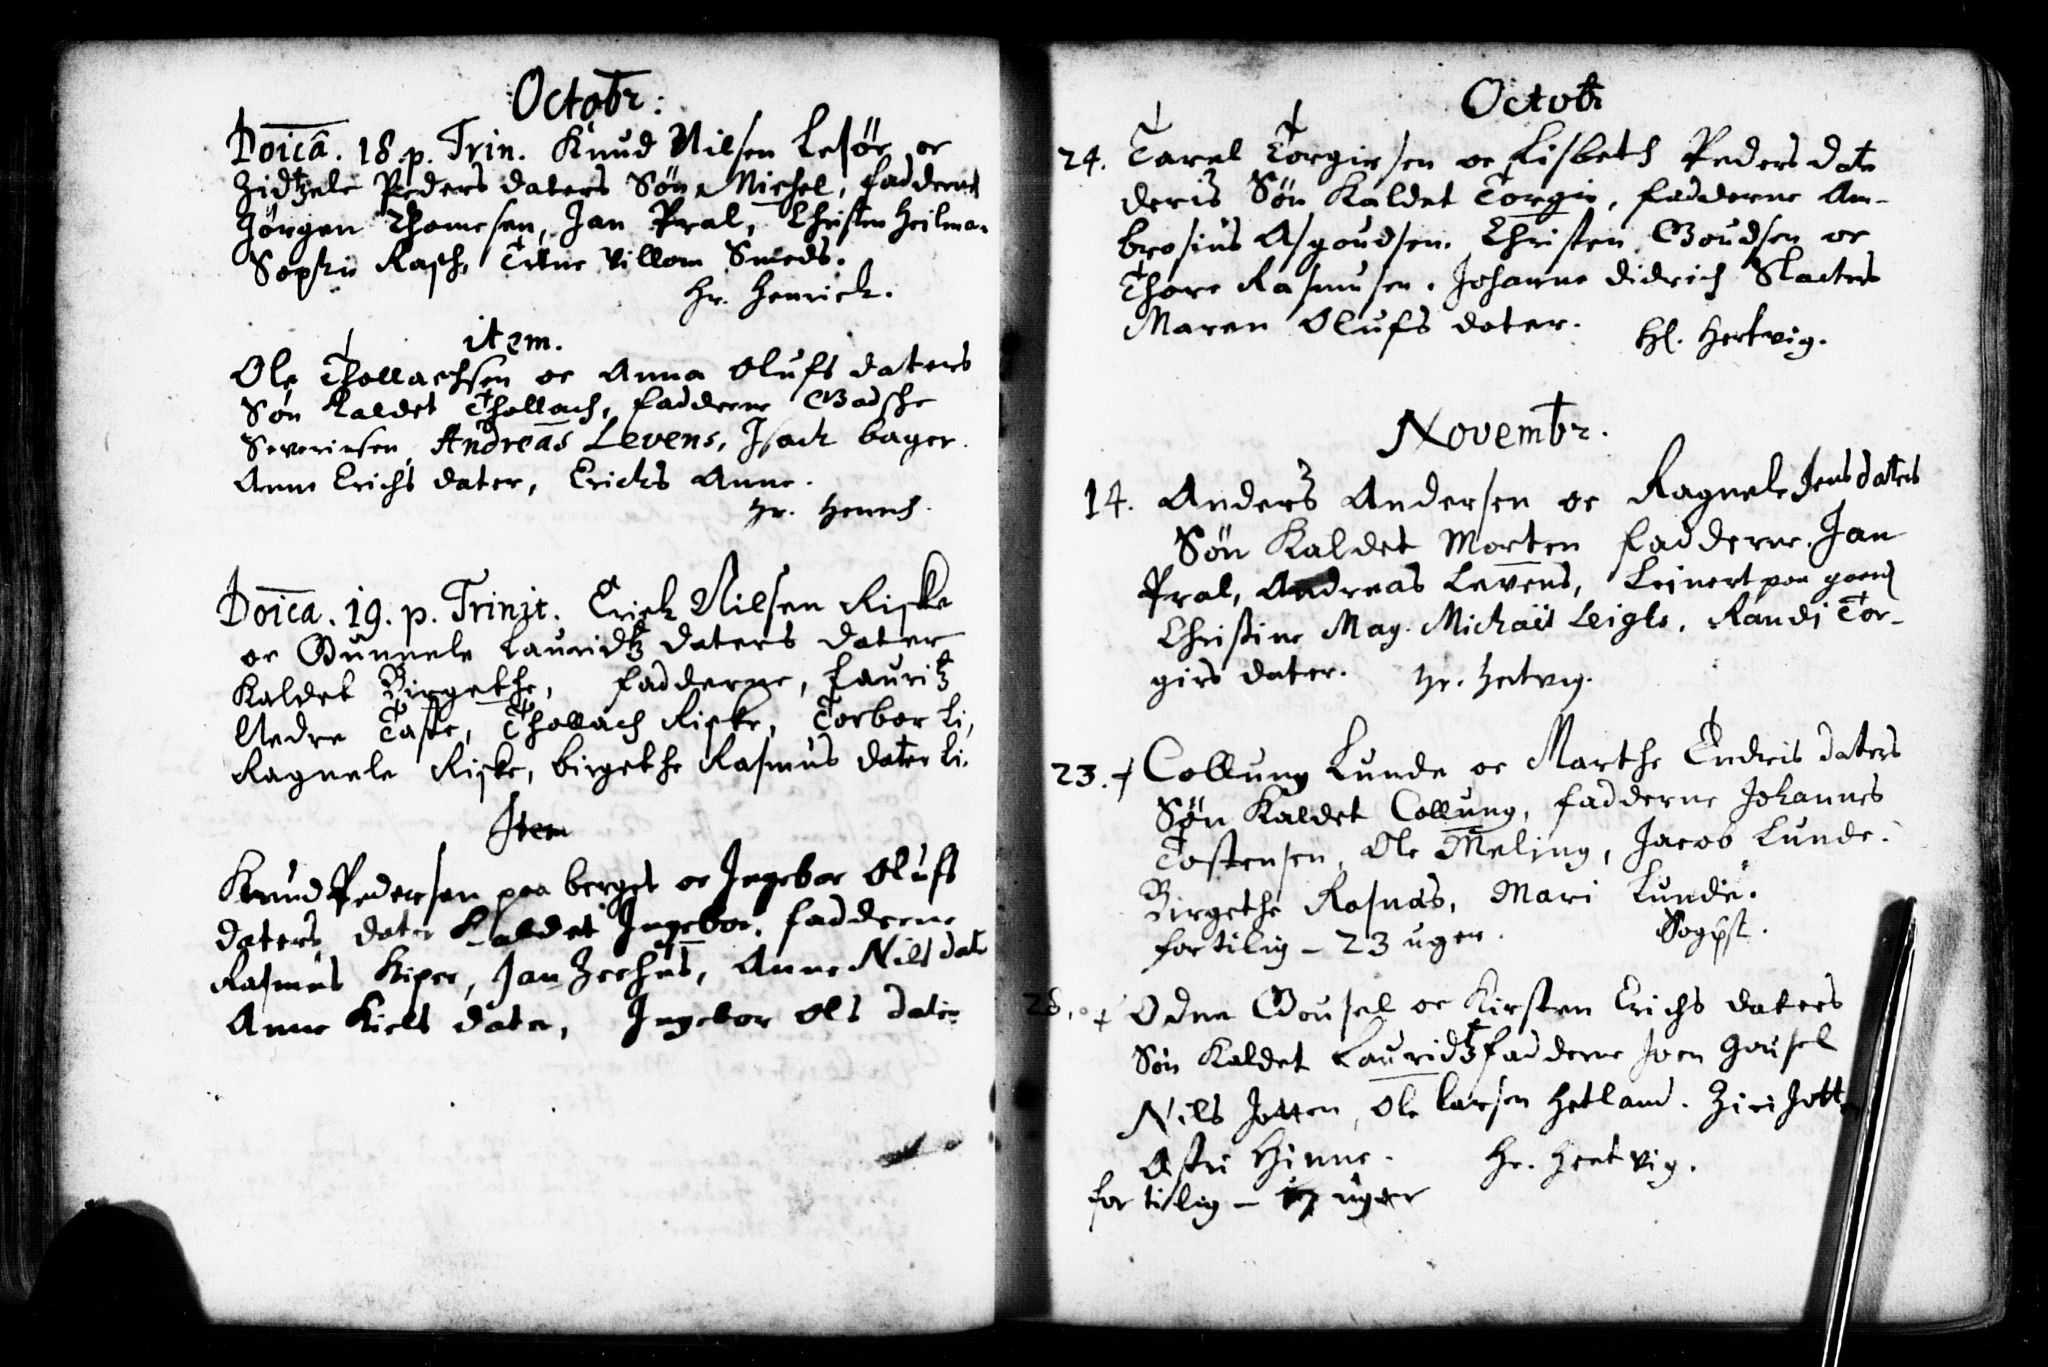 Octobr:
Doica. 18. p. Trin. Knud Nilsen Lesør oc
Zidtzele Peders daters Søn Michel, fadderne
Jørgen Thomesen, Jan Pral, Christen Heilman
Sophie Rasch, Villom Smeds.
Hr. Henrich.
item.
Ole Thollachsen oc Anna Olufs daters
Søn kaldet Thollach, fadderne Gadsche
Severinsen, Andreas Levens, Isach bager.
Anne Erichs dater, Erichs Anne.
Hr. Henrich.
Doica. 19. p. Trinit. Erich Nilsen Riske
oc Gunnele Lauridtz daters dater
Kaldet Birgethe, fadderne, Lauritz
Nedre Taste, Thollach Riske, Torbor Li,
Ragnele Riske, birgethe Rasmus dater Li.
Item
Knud Pedersen paa berget oc Ingebor Olufs
daters dater Kaldet Ingebor, fadderne
Rasmus Kiper, Jan Zeehus, Anne Nils dat
Anne Kiels dater, Ingebor Ols dater
Octobr
24. Taral Torgiersen oc Lisbeth Peders date
deris Søn Kaldet Torgir, fadderne Am-
brosius Asgoudsen. Christen Goudsen oc
Thore Rasmusen. Johanne Didrich Slacters
Maren Olufs dater. Hl. Hertvig.
Novembr.
14. Anders Andersen oc Ragnele Jens daters
Søn Kaldet Morten fadderne. Jan
Pral, Andreas Levens, Leinert paa
Christine Mag. Michail Leigls, Randi Tor-
girs dater. Hr. Hertvig.
23. + Collung Lunde oc Marthe Endris daters
Søn Kaldet Collung, fadderne Johannes
Tostensen, Ole Meling, Jacob Lunde.
Birgethe Rasmus, Mari Lunde.
for tilig - 23 uger. Sogpst.
28. + Odne Gousel oc Kirsten Erichs daters
Søn Kaldet Lauridtz fadderne Joen Gousel
Nils Jotten, Ole Larsen Hetland. Ziri Jotten
Astri Hinne. Hr. Hertvig.
for tilig - 17 uger